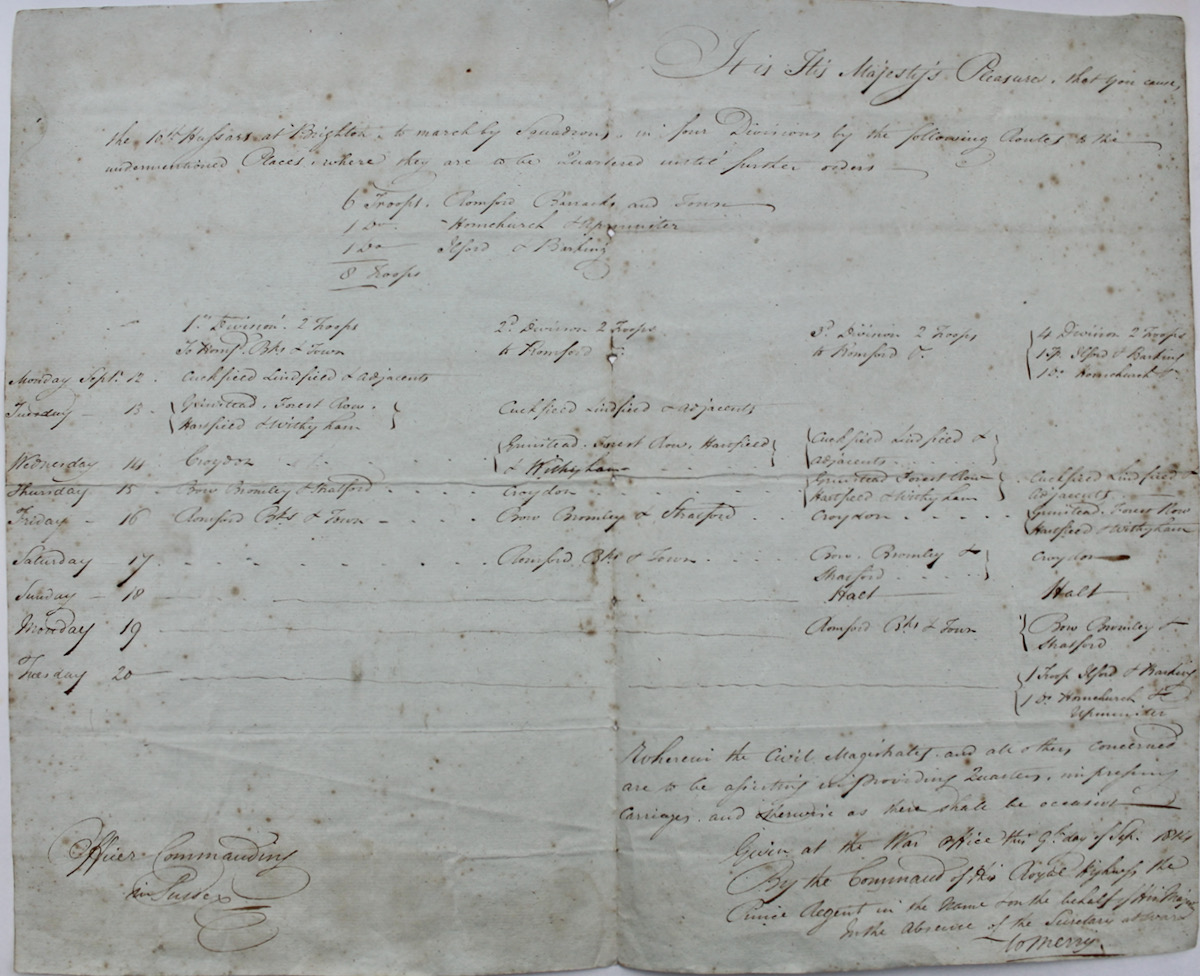 It is His Majesty's Pleasure, that you cause,
the 10th Hussars at Brighton to march by Squadrons, in four Divisions by the following Routes to the
undermentioned Places, where they are to be Quartered until further orders
6 Troops. Romford Barracks and Town
1 Do. Hornchurch & Upminster
1 Do Ilford & Barking
8 Troops
1st Division 2 Troops 2d Division 2 Troops 3d Division 2 Troops 4 Division 2 Troops
To Romfd. Bks & Town to Romford to Romford 1 Tp. Ilford & Barking
1 Do. Hornchurch &c
Monday Septr. 12 Cuckfield Lindfield & Adjacents
Tuesday 13 Grinstead. Forest Row. Cuckfield Lindfield & Adjacents
Hartfield & Withyham
Wednesday 14 Croydon Grinstead. Forest Row, Hartfield Cuckfield Lindfield &
& Withyham Adjacents
Thursday 15 Bow Bromley & Stratford Croydon Grinstead Forest Row Cuckfield Lindfield &
Hartfield & Withyham Adjacents
Friday 16 Romford Bks & Town Bow Bromley & Stratford Croydon Grinstead. Forest Row
Hartfield & Withyham
Saturday 17 Romford Bks & Town Bow. Bromley & Croydon
Stratford
Sunday 18 Halt Halt
Monday 19 Romford Bks & Town Bow Bromley &
Stratford
Tuesday 20 1 Troop Ilford & Barking
1 Do Hornchurch &
Upminster
Wherein the Civil Magistrates and all others concerned
are to be assisting in Providing Quarters, impressing
Carriages, and otherwise as there shall be occasion
Given at the War Office this 9th day of Sepr. 1814
By the Command of His Royal Highness the
Prince Regent in the Name & on the behalf of His Majesty
In the Absence of the Secretary at War
Wm Merry
Officer Commanding
in Sussex